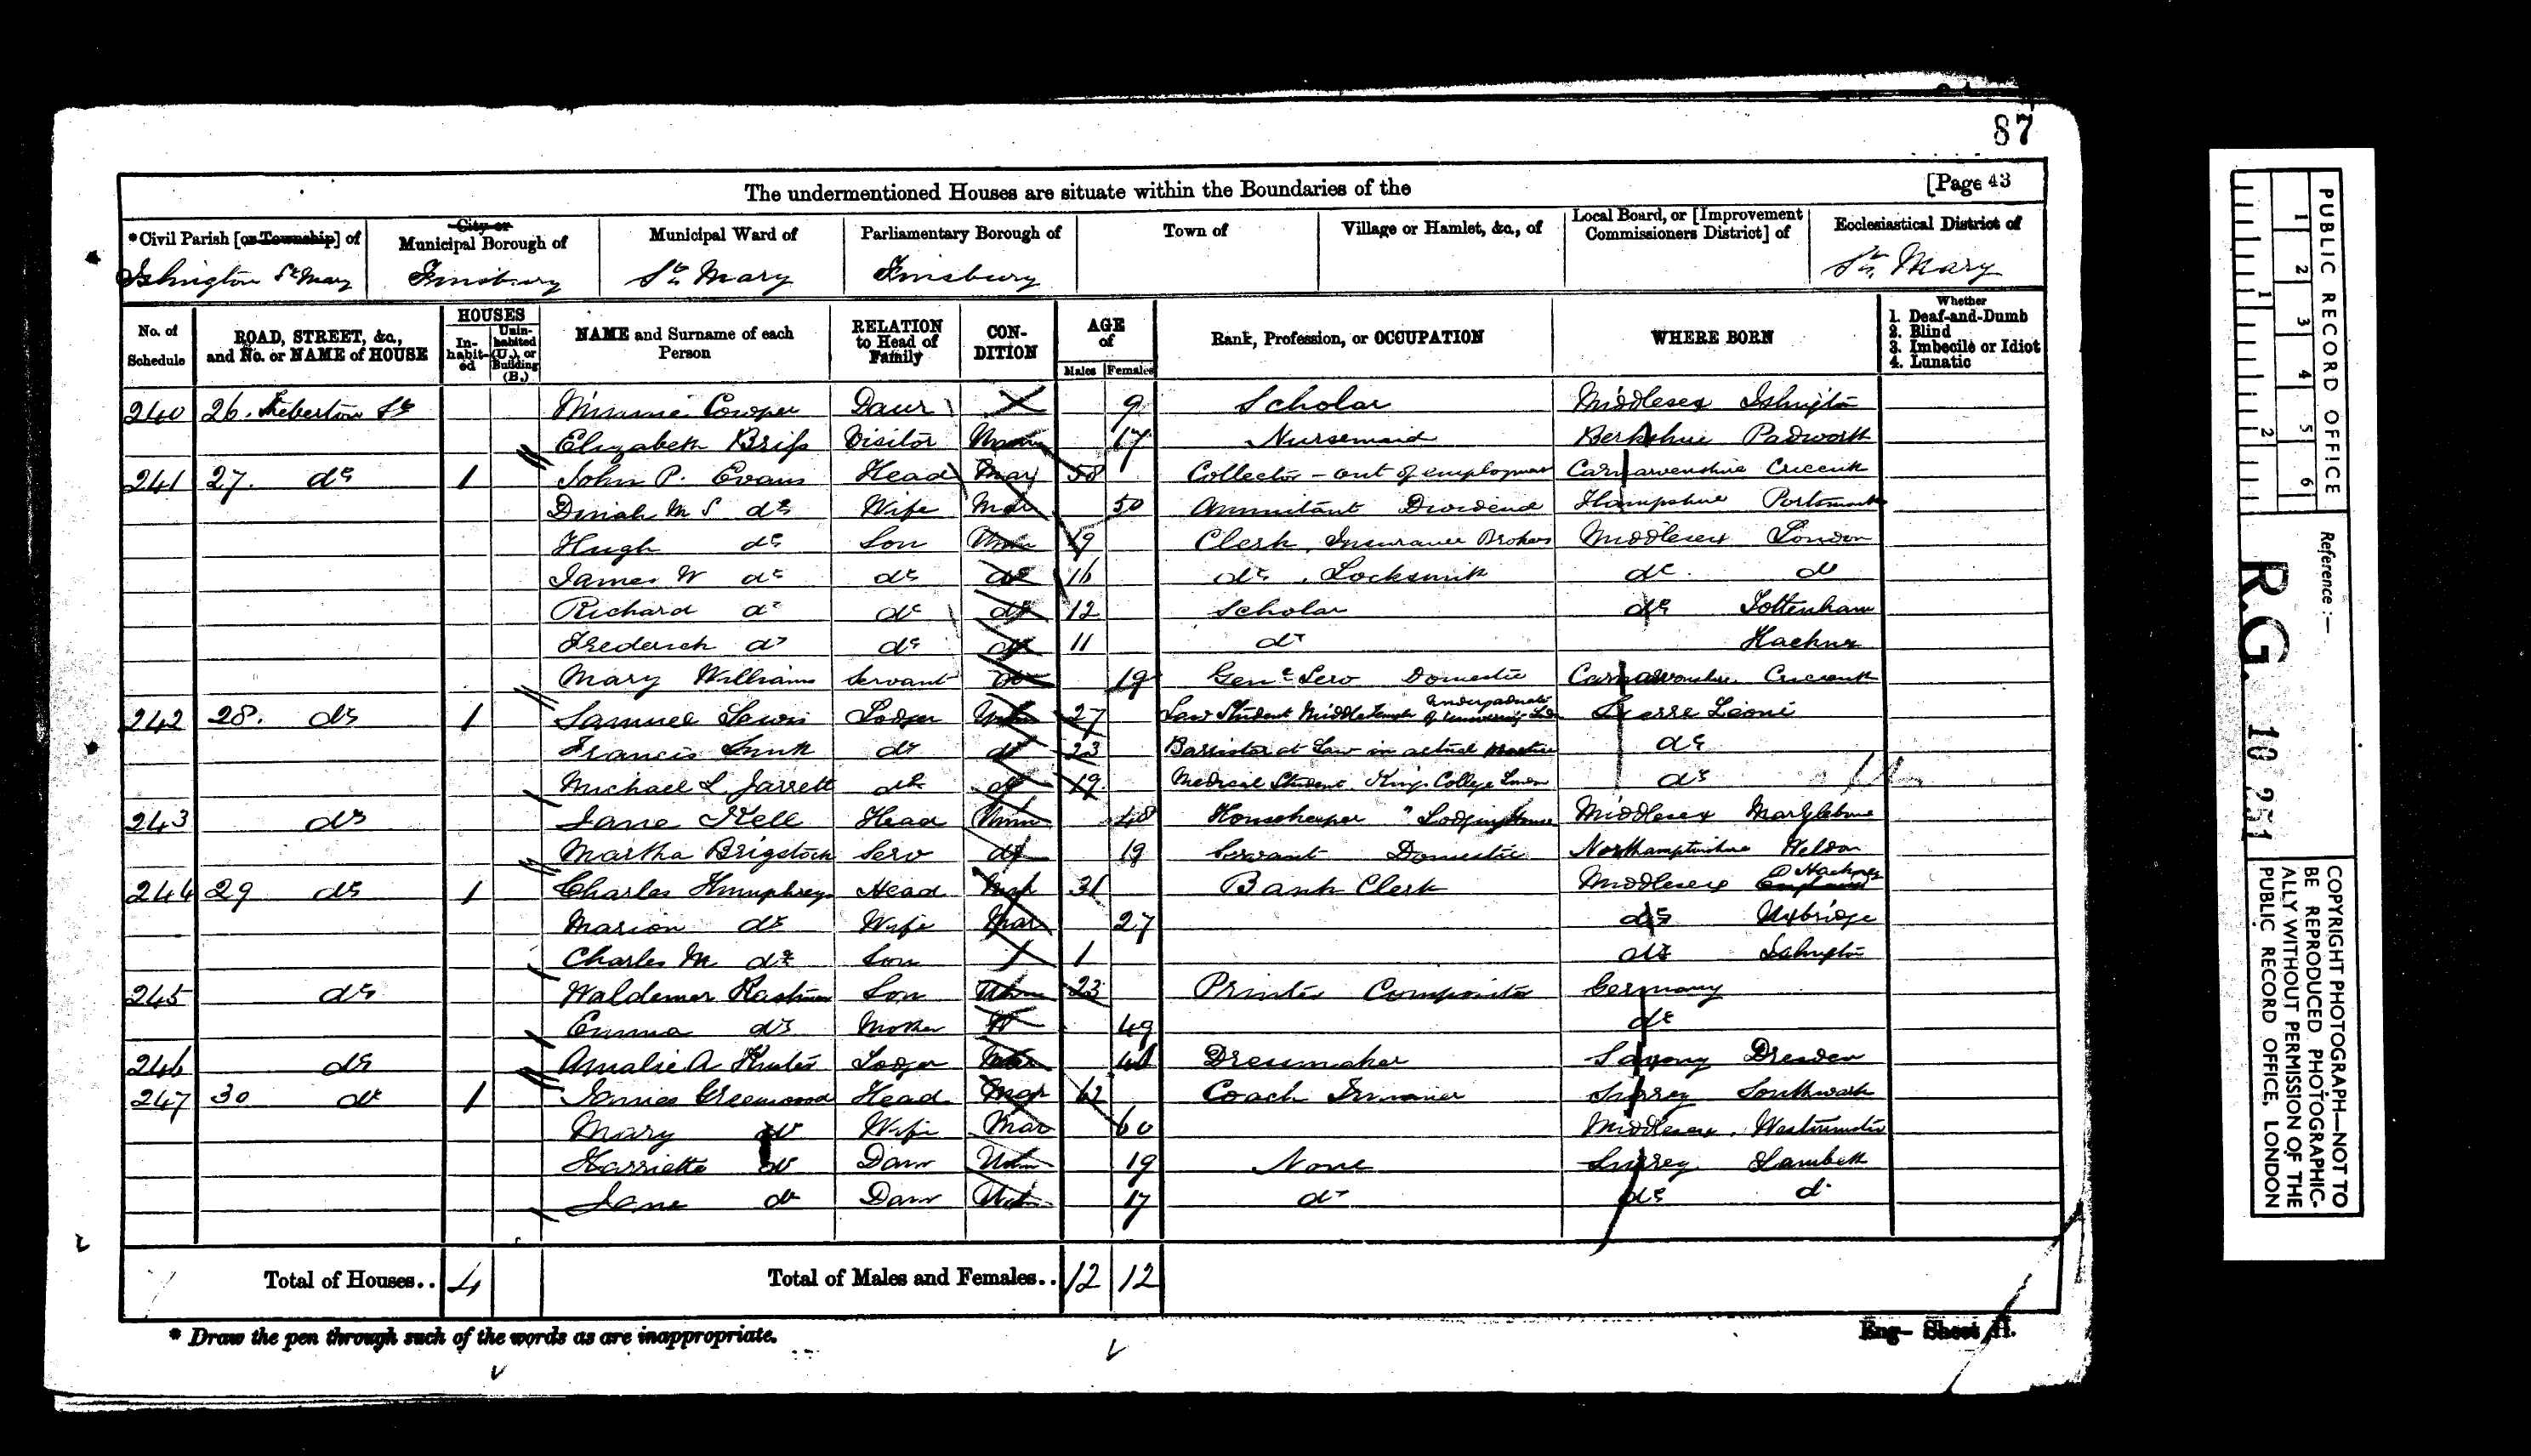 87
The undermentioned Houses are situate within the Boundaries of the [Page 43
*Civil Parish [or Township] of
City or Municipal Borough of
Municipal Ward of
Parliamentary Borough of
Town of
Village or Hamlet, &c., of
Local Board, or [Improvement Commissioners District] of
Ecclesiastical District of
Islington St Mary Finsbury St Mary Finsbury St Mary
No. of Schedule
ROAD, STREET, &c., and No. or NAME of HOUSE
HOUSES
In-habit-ed
Unin-habited (U.), or Building (B.)
NAME and Surname of each Person
RELATION to Head of Family
CON-DITION
AGE of
Males Females
Rank, Profession, or OCCUPATION
WHERE BORN
Whether
1. Deaf-and-Dumb
2. Blind
3. Imbecile or Idiot
4. Lunatic
240 26. St Minnie Cowper Daur 9 Scholar Middlesex Islington
Elizabeth Visitor 17 Nursemaid Berkshire Padworth
241 27. do 1 John P. Evans Head Mar 58 Collector - out of employment Carnarvonshire
Dinah M S do Wife Mar 50 Annuitant Dividend Hampshire Portsmouth
Hugh do Son Unm 19 Clerk, Insurance Brokers Middlesex London
James W do do do 16 do, Locksmith do. do
Richard do do do 12 Scholar do Tottenham
Frederick do do do 11 do Hackney
Mary Williams Servant do 19 Genl Serv Domestic Carnarvonshire
242 28. do 1 Samuel Lewis Lodger Unm 27 Law Student Middle Temple Undergraduate of University Sierra Leone
Francis Smith do do 23 Barrister at Law in actual practice do
Michael L. Jarrett do do 19 Medical Student. Kings College London do
243 do Jane Kell Head Unm 48 Housekeeper "Lodging House Middlesex Marylebone
Martha Brigstock Serv do 19 Servant Domestic Northamptonshire Weldon
244 29 do 1 Charles Humphreys Head Mar 31 Bank Clerk Middlesex Hackney
Marion do Wife Mar 27 do Uxbridge
Charles M do Son 1 do Islington
245 do Waldemar Son Unm 23 Printer Compositor Germany
Emma do Mother W 49 do
246 do Amalie A Lodger Mar Dressmaker Saxony Dresden
247 30 do 1 James Greenwood Head Mar 62 Coach Trimmer Surrey Southwark
Mary do Wife Mar 60 Middlesex. Westminster
Harriette do Daur Unm 19 None Surrey Lambeth
Jane do Daur Unm 17 do do do
Total of Houses.. 4 Total of Males and Females.. 12 12
* Draw the pen through such of the words as are inappropriate.
Eng- Sheet H.
PUBLIC RECORD OFFICE
1 2 3 4 5 6
1 2
Reference :-
R.G. 10 251
COPYRIGHT PHOTOGRAPH—NOT TO
BE REPRODUCED PHOTOGRAPHIC-
ALLY WITHOUT PERMISSION OF THE
PUBLIC RECORD OFFICE, LONDON